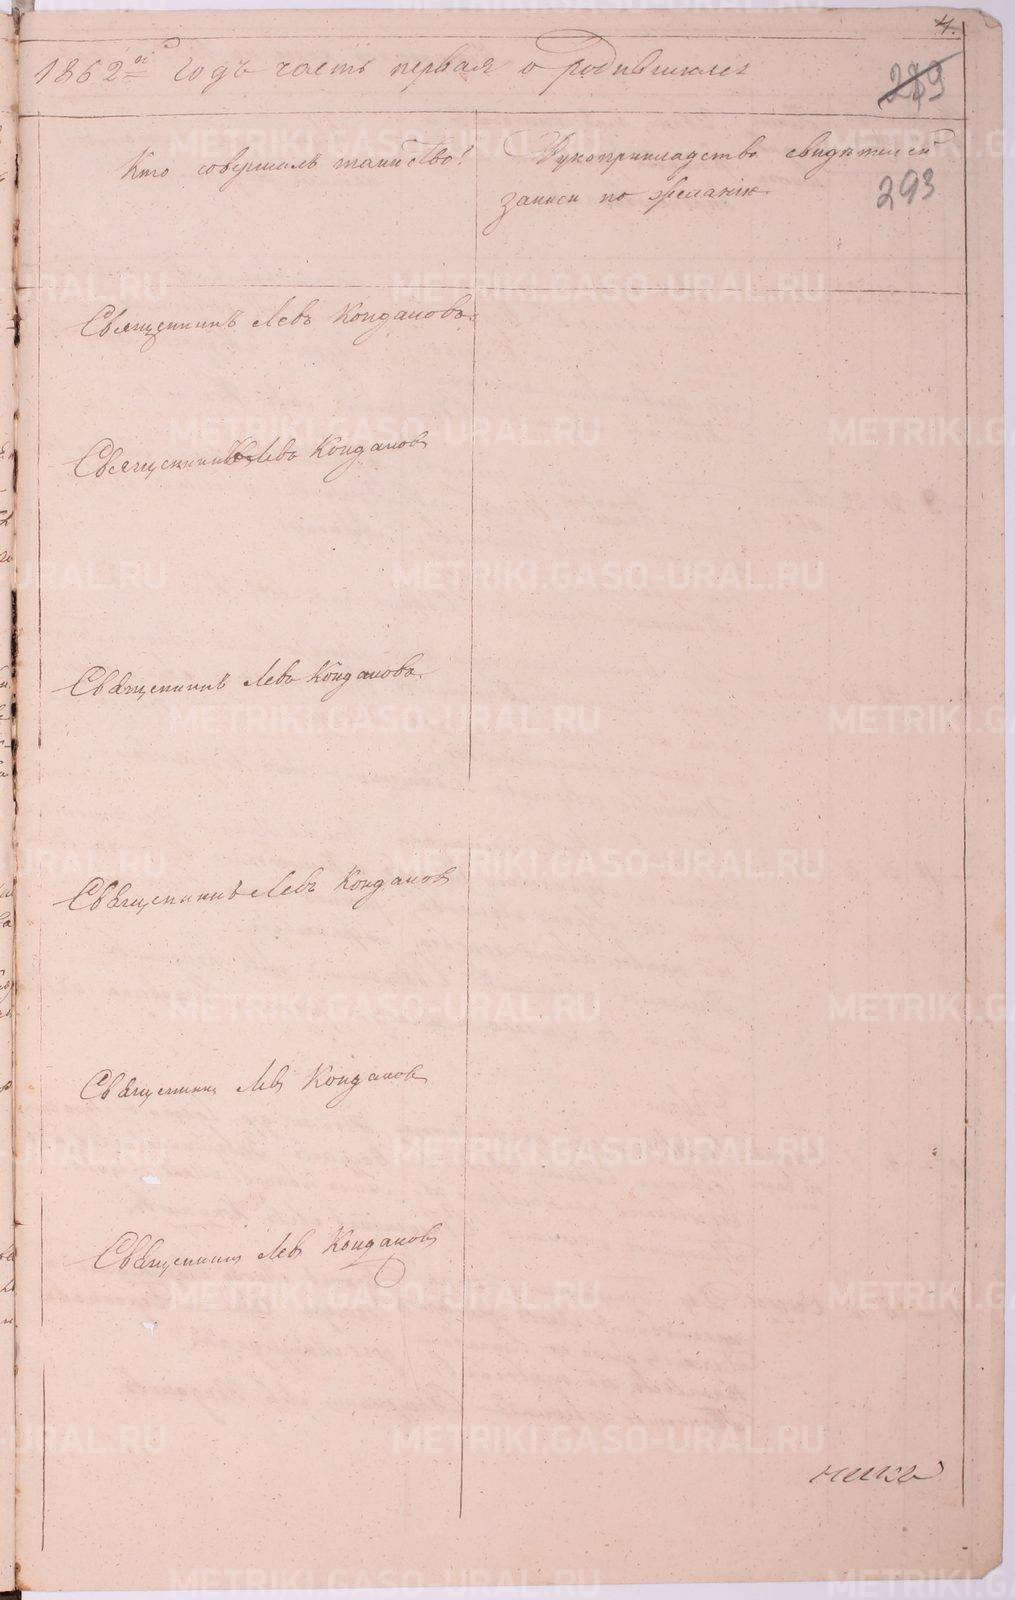 4.
1862ой Годъ часть первая о родившихся
289
Кто совершалъ таинство?
Рукоприкладство свидѣтелей
записи по желанію.
293
Священникъ Левъ Кондаковъ.
Священникъ Левъ Кондаков
Священникъ Левъ Кондаковъ.
Священникъ Левъ Кондаков
Священникъ Левъ Кондаковъ
Священникъ Левъ Кондаковъ
METRIKI.GASO-URAL.RU